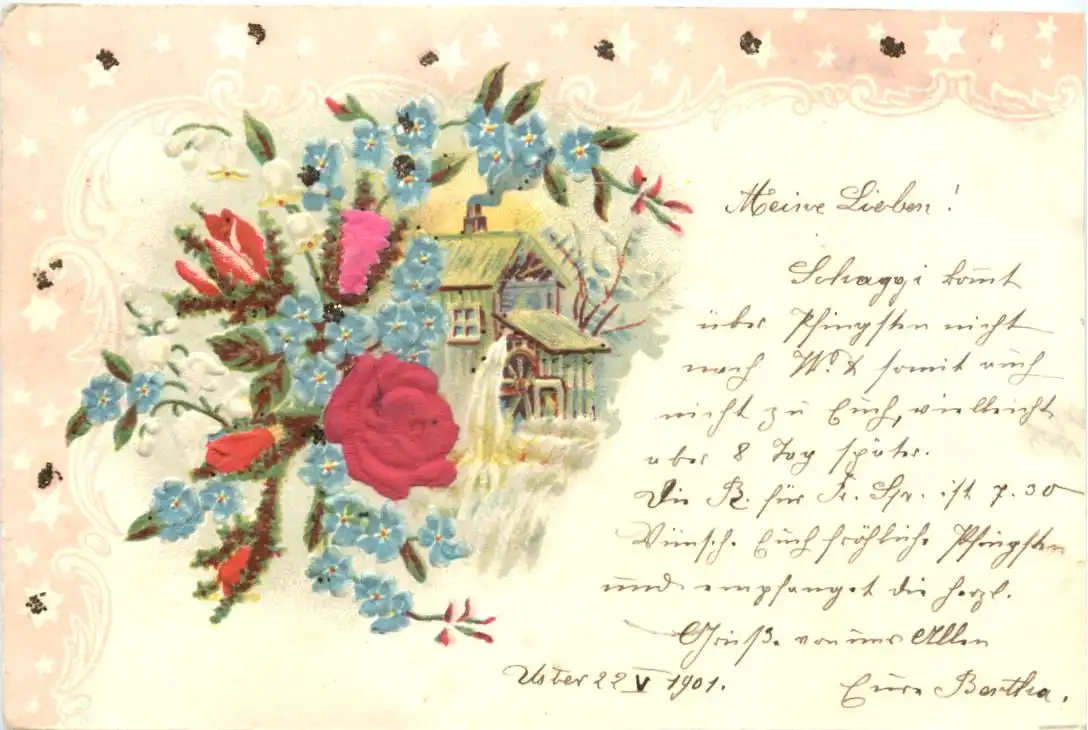 Meine Lieben!
Schaggi kom̄t
über Pfingsten nicht
nach W. & somit auch
nicht zu Euch, vielleicht
aber 8 Tag später.
Die R. für Fr. Spr. ist 7.30
Wünsche Euch fröhliche Pfingsten
und empfanget die herzl.
Grüße von uns Allen
Uster 22 V 1901. Eure Bertha.